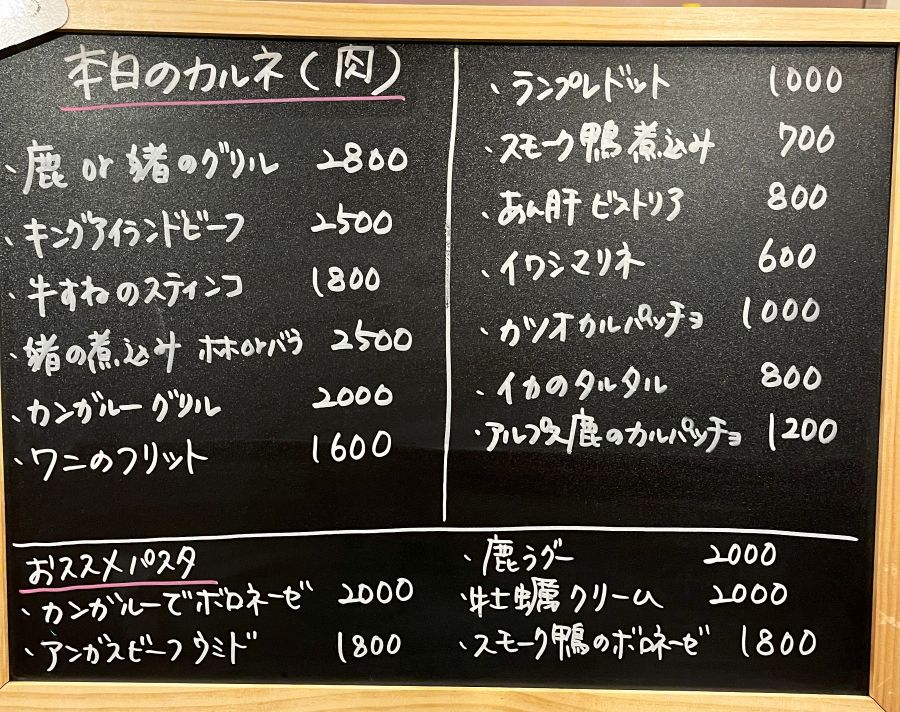 本日のカルネ(肉)
・鹿or猪のグリル 2800
・キングアイランドビーフ 2500
・牛すねのスティンコ 1800
・猪の煮込み ホホorバラ 2500
・カンガルーグリル 2000
・ワニのフリット 1600
・ランプレドット 1000
・スモーク鴨煮込み 700
・あん肝ビストリア 800
・イワシマリネ 600
・カツオカルパッチョ 1000
・イカのタルタル 800
・アルプス鹿のカルパッチョ 1200
おススメパスタ
・カンガルーでボロネーゼ 2000
・アンガスビーフウミド 1800
・鹿ラグー 2000
・牡蠣クリーム 2000
・スモーク鴨のボロネーゼ 1800